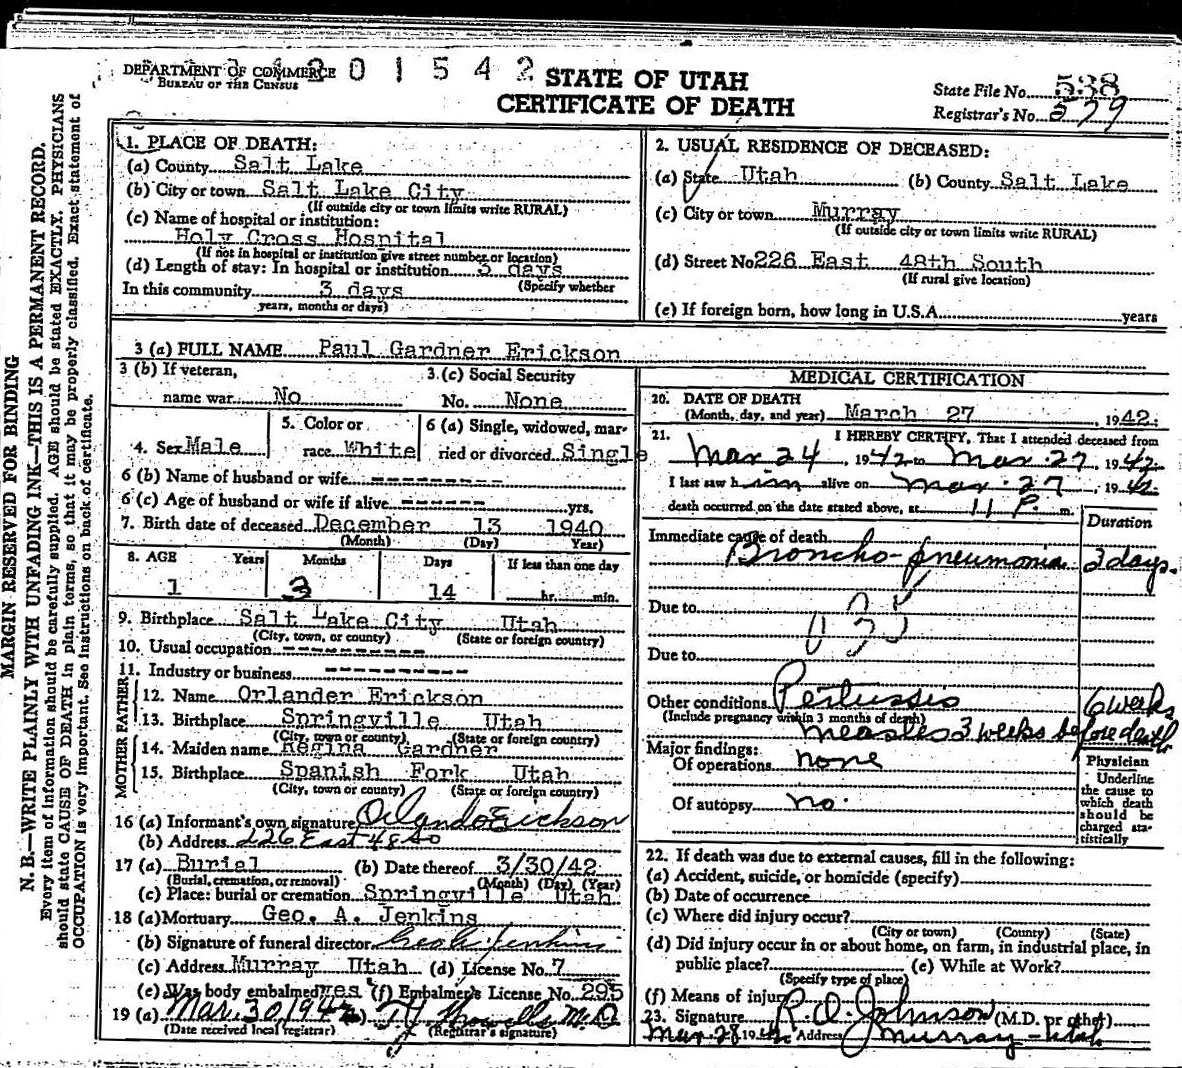 DEPARTMENT OF COMMERCE
BUREAU OF THE CENSUS
201542
STATE OF UTAH
CERTIFICATE OF DEATH
State File No. 538
Registrar's No. 579
MARGIN RESERVED FOR BINDING
N. B.—WRITE PLAINLY WITH UNFADING INK—THIS IS A PERMANENT RECORD.
Every item of information should be carefully supplied. AGE should be stated EXACTLY. PHYSICIANS
should state CAUSE OF DEATH in plain terms, so that it may be properly classified. Exact statement of
OCCUPATION is very important. See instructions on back of certificate.
1. PLACE OF DEATH:
(a) County Salt Lake
(b) City or town Salt Lake City
(If outside city or town limits write RURAL)
(c) Name of hospital or institution:
Holy Cross Hospital
(If not in hospital or institution give street number or location)
(d) Length of stay: In hospital or institution 3 days
(Specify whether
In this community 3 days
years, months or days)
2. USUAL RESIDENCE OF DECEASED:
(a) State Utah (b) County Salt Lake
(c) City or town Murray
(If outside city or town limits write RURAL)
(d) Street No 226 East 48th South
(If rural give location)
(e) If foreign born, how long in U.S.A. years
3 (a) FULL NAME Paul Gardner Erickson
3 (b) If veteran,
name war No
3 (c) Social Security
No. None
4. Sex Male
5. Color or
race White
6 (a) Single, widowed, mar-
ried or divorced Single
6 (b) Name of husband or wife
6 (c) Age of husband or wife if alive yrs.
7. Birth date of deceased December 13 1940
(Month) (Day) (Year)
8. AGE Years Months Days If less than one day
1 3 14 hr. min.
9. Birthplace Salt Lake City Utah
(City, town, or county) (State or foreign country)
10. Usual occupation
11. Industry or business
FATHER
12. Name Orlander Erickson
13. Birthplace Springville Utah
(City, town or county) (State or foreign country)
MOTHER
14. Maiden name Regina Gardner
15. Birthplace Spanish Fork Utah
(City, town or county) (State or foreign country)
16 (a) Informant's own signature Orlando Erickson
(b) Address 226 East 48 So
17 (a) Burial (b) Date thereof 3/30/42
(Burial, cremation, or removal) (Month) (Day) (Year)
(c) Place: burial or cremation Springville Utah
18 (a) Mortuary Geo. A. Jenkins
(b) Signature of funeral director Geo A. Jenkins
(c) Address Murray Utah (d) License No. 7
(e) Was body embalmed? yes (f) Embalmer's License No. 295
19 (a) Mar. 30, 1942 (b) M.D.
(Date received local registrar) (Registrar's signature)
MEDICAL CERTIFICATION
20. DATE OF DEATH
(Month, day, and year) March 27, 1942.
21. I HEREBY CERTIFY, That I attended deceased from
Mar 24, 1942 to Mar. 27 1942.
I last saw h im alive on Mar. 27, 1942.
death occurred on the date stated above, at 11 P. m.
Duration
Immediate cause of death
Broncho-pneumonia 3 days.
Due to
Due to
Other conditions Pertussis 6 weeks
(Include pregnancy within 3 months of death)
measles 3 weeks before death
Major findings:
Of operations none
Of autopsy no.
Physician
Underline
the cause to
which death
should be
charged sta-
tistically
22. If death was due to external causes, fill in the following:
(a) Accident, suicide, or homicide (specify)
(b) Date of occurrence
(c) Where did injury occur?
(City or town) (County) (State)
(d) Did injury occur in or about home, on farm, in industrial place, in
public place? (e) While at Work?
(Specify type of place)
(f) Means of injury
23. Signature R. O. Johnson (M.D. or other)
Mar. 28 1942 Address Murray - Utah